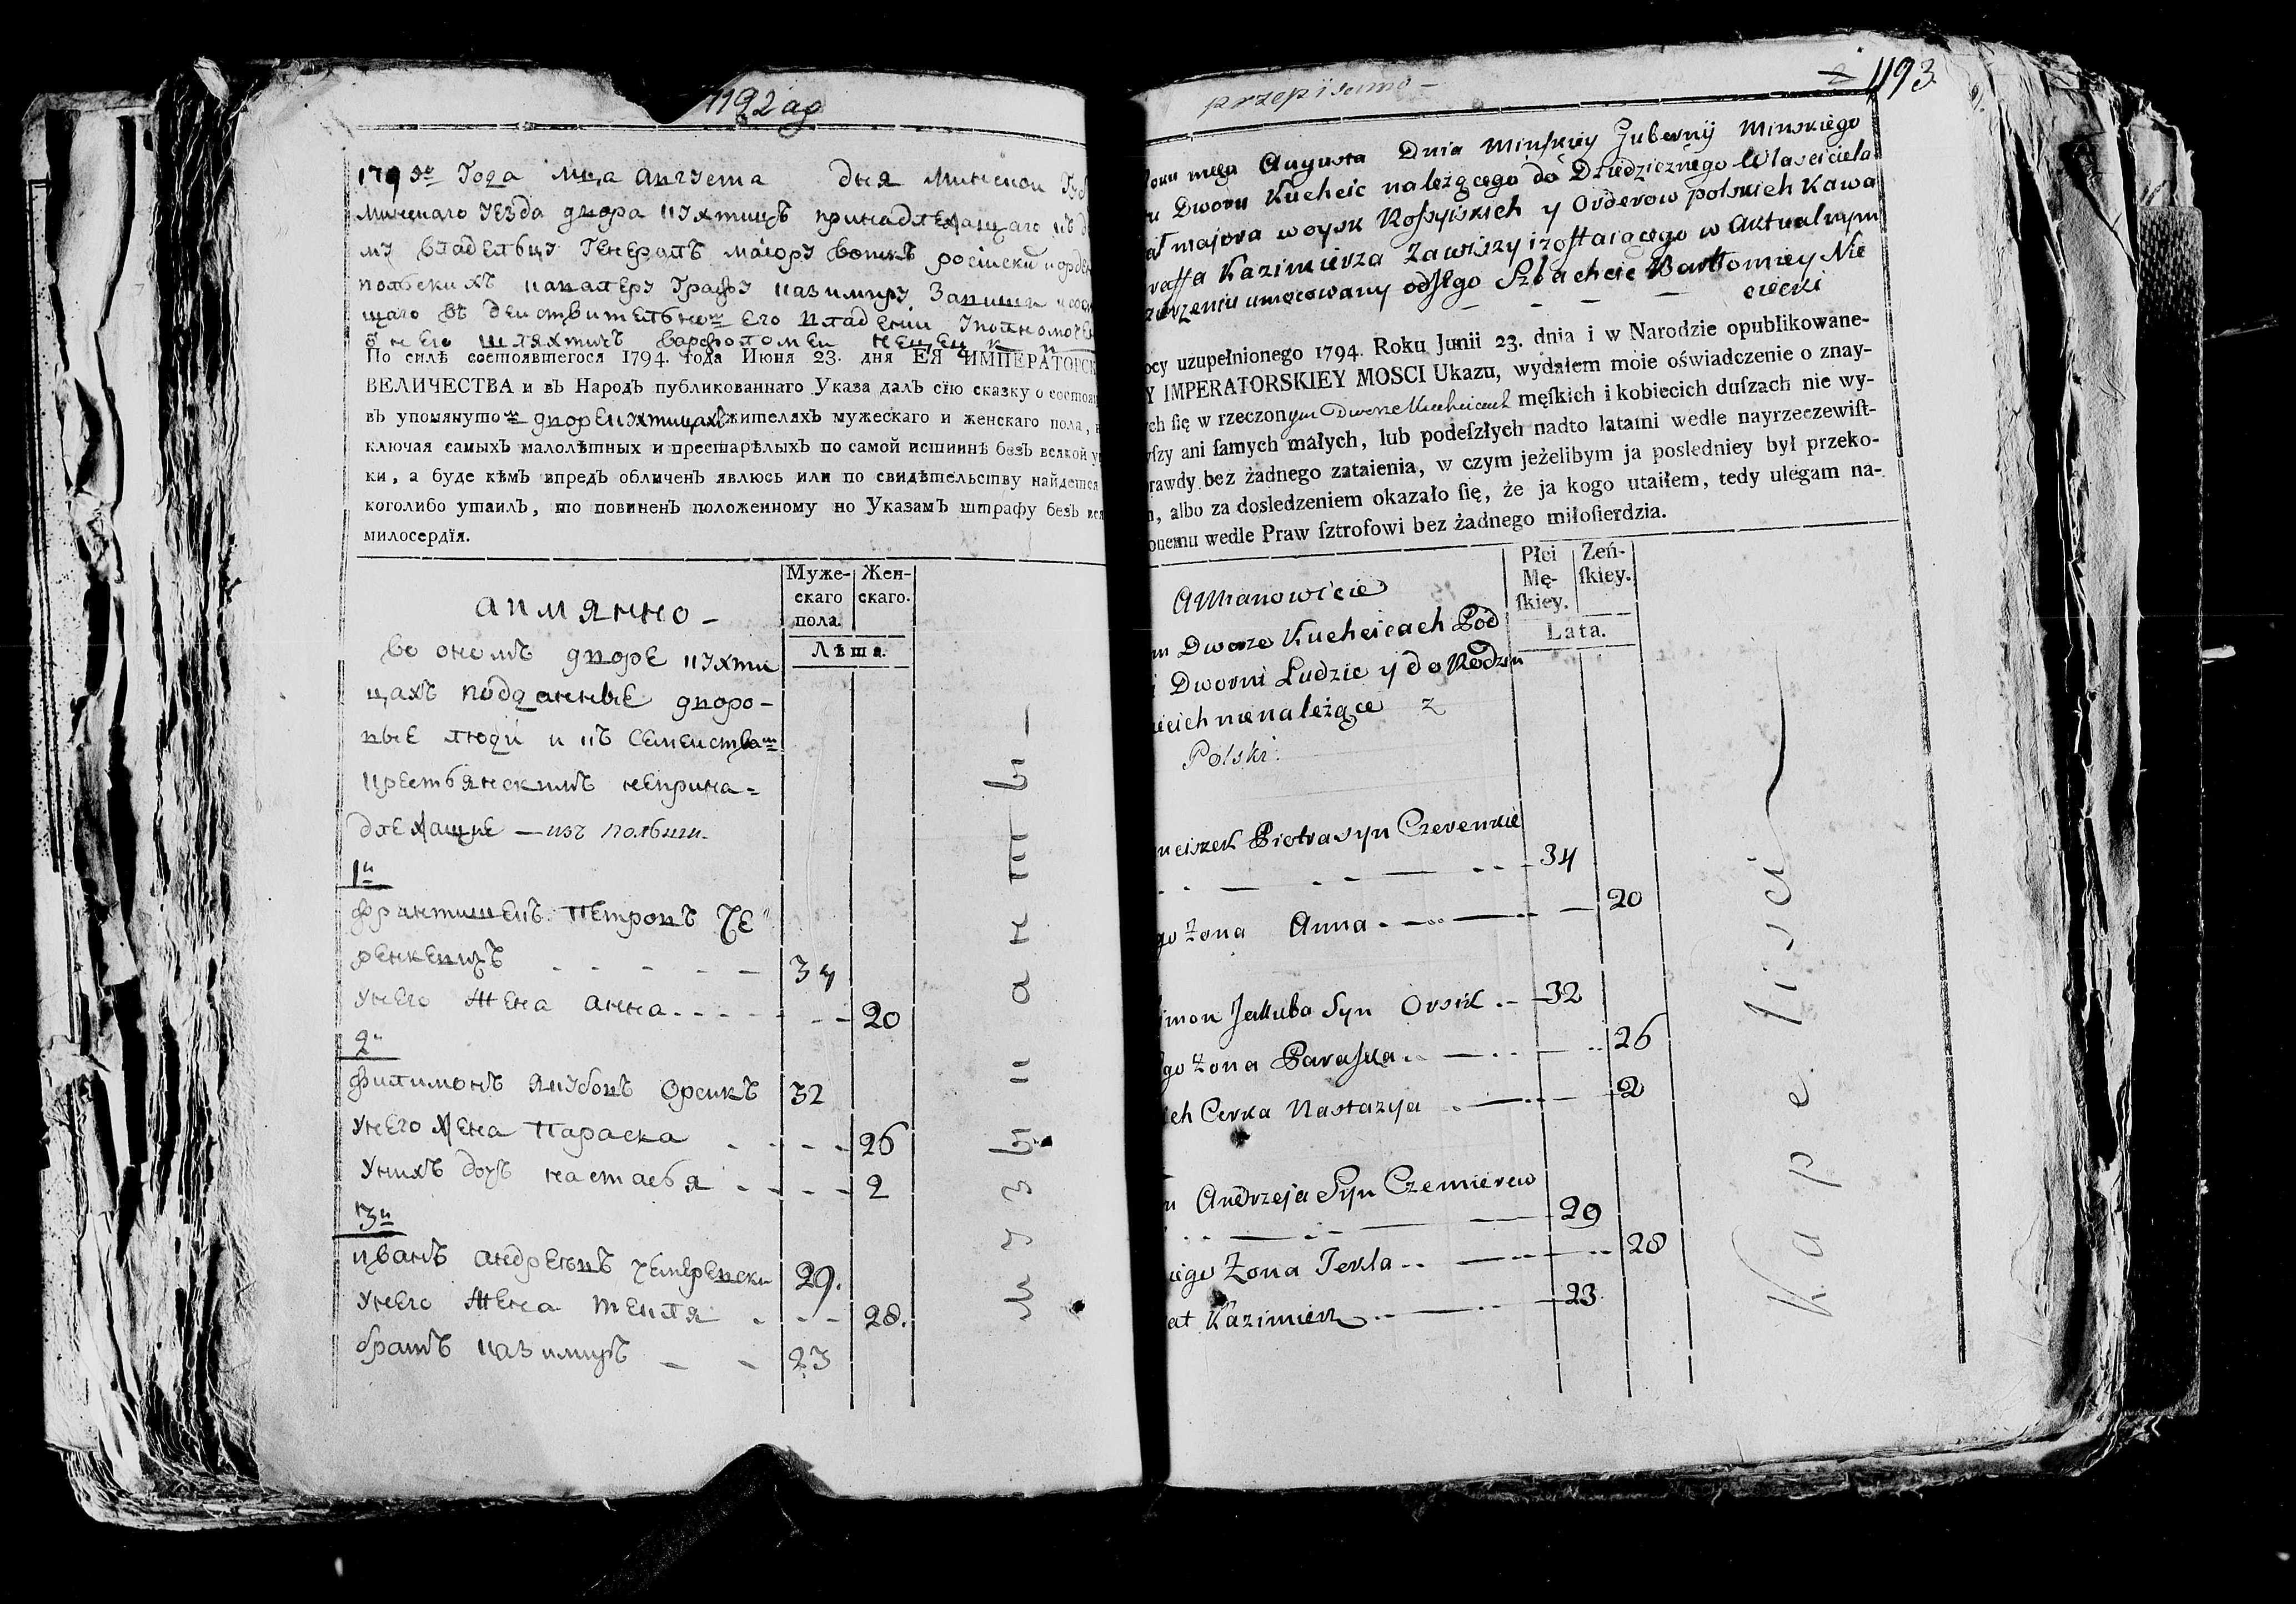 1192 ад
179 5го Года мца Августа дня Минской Губ
Минскаго уезда двора Кухтицъ принадлежащаго къ д
му владельцу Генералъ маiору войскъ росiски орде
польскихъ кавалеру Графу казимиру Завиши исост
щаго въ действительном его владенiи Уполномоче
о него шляхтичъ варфоломеи
По силѣ состоявшегося 1794. года Июня 23. дня ЕЯ ИМПЕРАТОРСК
ВЕЛИЧЕСТВА и въ Народъ публикованнаго Указа далъ сїю сказку о состоя
въ упомянутом дворе Кухтицахъ жителяхъ мужескаго и женскаго пола,
ключая самыхъ малолѣтных и престарѣлыхъ по самой истиннѣ безъ всякой у
ки, а буде кѣмъ впредъ обличенъ явлюсь или по свидѣтельству найдется
коголибо утаилъ, то повиненъ положенному по Указамъ штрафу безъ вся
милосердїя.
Муже- Жен-
скаго скаго.
пола.
Лѣта.
аимянно -
во ономъ дворе Кухти
цахъ подданные дворо-
вые люди и къ семействам
крестьянскимъ неприна=
длежащие — изъ польши.
1й
Франтишекъ Петровъ Че
ренкевичъ - - - - - 34
унего жена анна - - - - - - 20
2й
Филимонъ якубовъ Орсикъ 32
унего жена Параска - - - - 26
унихъ дочь настасья - - - - 2
3й
иванъ андреевъ чемеревски 29.
унего жена текля - - - 28.
братъ казимиръ - - 23
музыканты -
przepisano -
1193
oku mca Augusta Dnia Minskiey Gubernij Minskiego
u Dworu Kucheic należącego do Dziedzicznego Wlasciciela
ał majora woysk Rossyiskich y Orderow polskich Kawa
raffa Kazimierza Zawiszy izostaiącego w Aktualnym
rzeniu umocowany odJego Szlachcic Bartłomiey Nie
ciecki
ocy uzupełnionego 1794. Roku Junii 23. dnia i w Narodzie opublikowane-
Y IMPERATORSKIEY MOSCI Ukazu, wydałem moie oświadczenie o znay-
ych się w rzeczonym Dworze Kucheicach męſkich i kobiecich duſzach nie wy-
yſzy ani ſamych małych, lub podeſzłych nadto latami wedle nayrzeczewiſt-
rawdy bez żadnego zataienia, w czym jeżelibym ja posledniey był przeko-
n, albo za dosledzeniem okazało ſię, że ja kogo utaiłem, tedy ulegam na-
onemu wedle Praw ſztrofowi bez żadnego miłoſierdzia.
Płci Żeń-
Mę- ſkiey.
ſkiey.
Lata.
AMianowicie
m Dworze Kucheicach Pod
i Dworni Ludzie y do Rodzin
ieich nienależące z
Polski.
nciszek Piotra syn Czerenkie
- - - - - - 34
go żona Anna - - - - 20
imon Jakuba Syn Orsik - 32
go żona Paraska - - - - 26
ich Cerka Nastazya - - - 2
n Andrzeja Syn Czemierew
- - - - 29
iego Żona Tekla - - - - 28
at Kazimierz - - - 23
Kapelisci